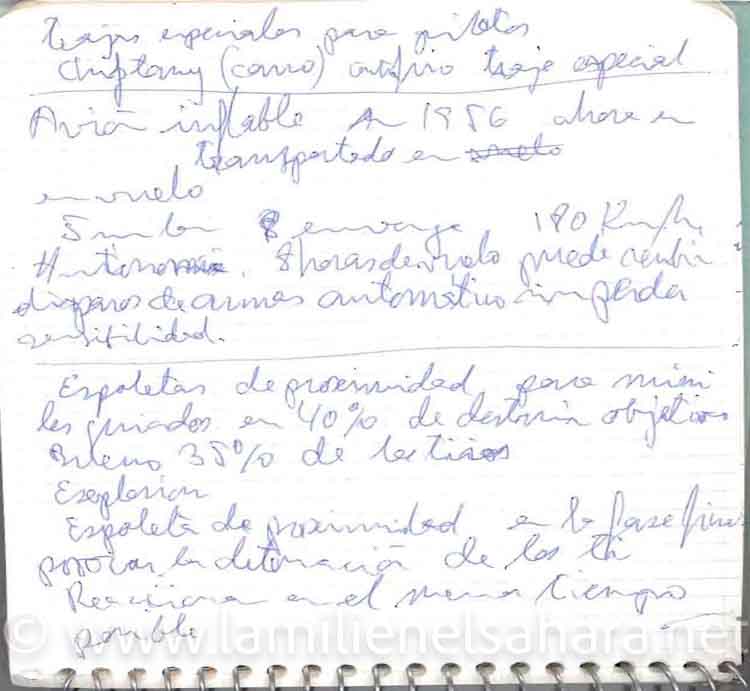 Trajes especiales para pilotos
Chiftany (carro) antifrio traje especial
Avión inflable en 1956 ahora en
transportado en vuelo
en vuelo
8 enverga 180 Km/h.
Autonomia. 8 horas de vuelo puede recibir
disparos de armas automático sin perder
sensibilidad.
Espoletas de proximidad para misi
les guiados en 40% de destruir objetivos
Bueno 35% de
Explosion
Espoleta de proximidad en la fase final
la detonación de los
Reacciona en el menor tiempo
posible
© www.lamilienelsahara.net